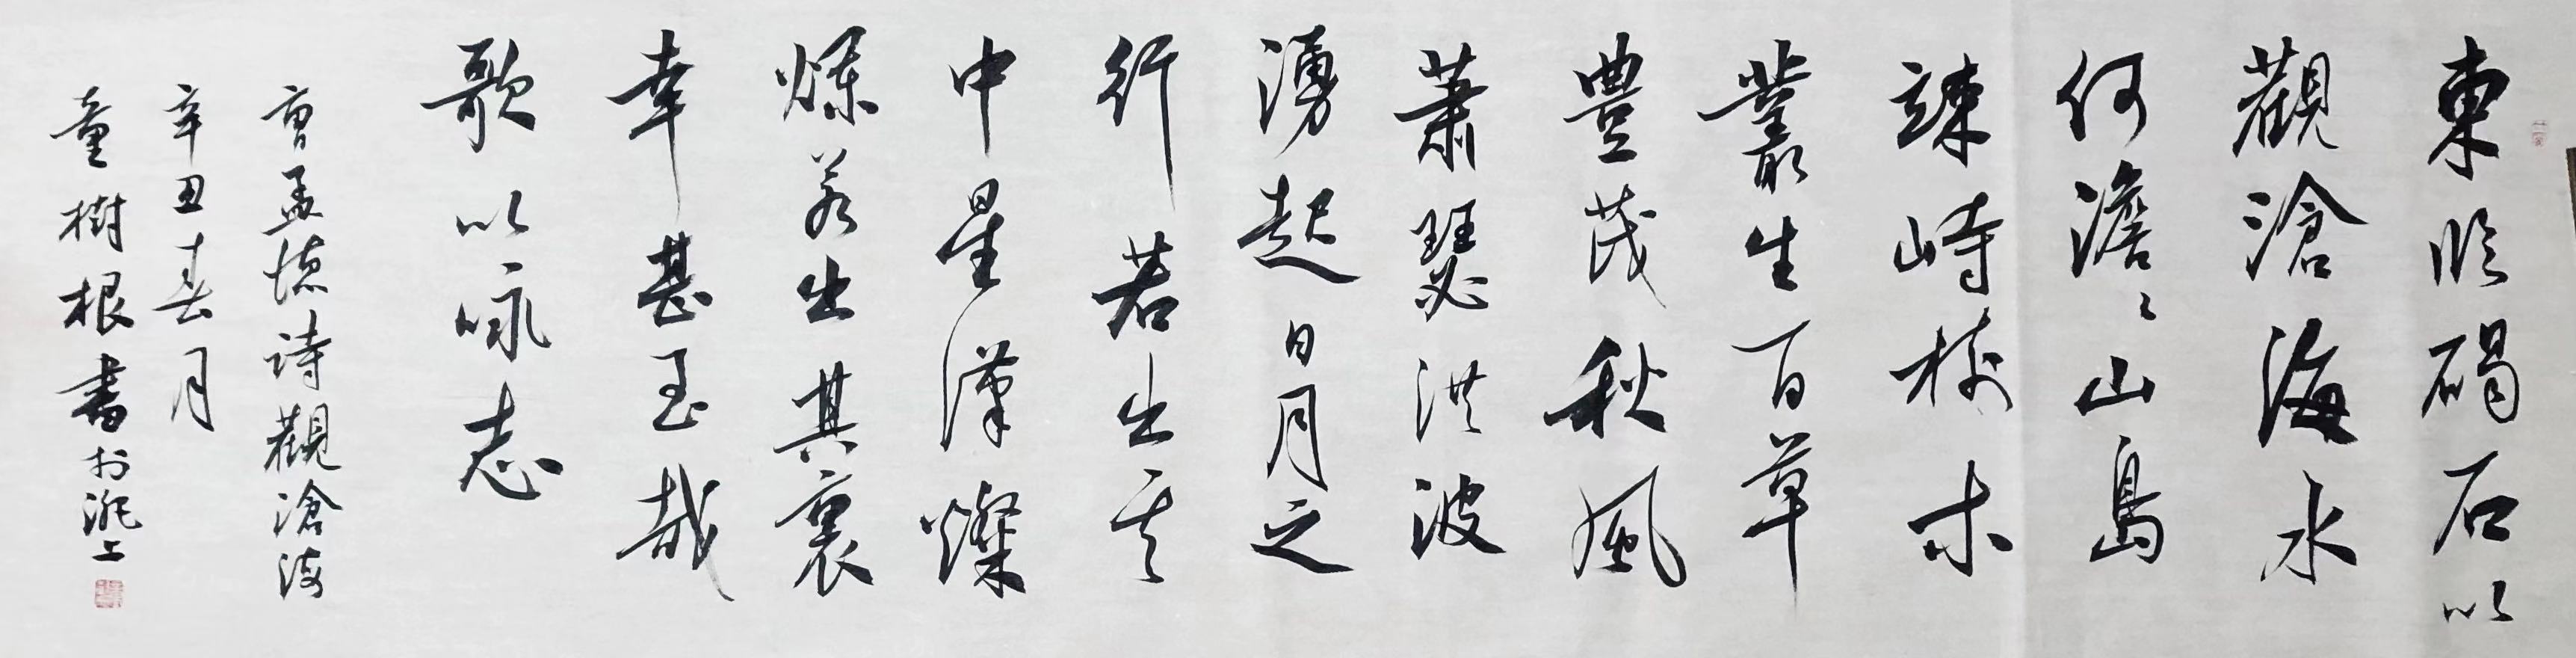 東臨碣石以
觀滄海水
何澹々山島
竦峙樹木
叢生百草
豐茂秋風
蕭瑟洪波
湧起日月之
行若出其
中星漢燦
爛若出其裏
幸甚至哉
歌以咏志
曹孟德詩觀滄海
辛丑春月
童樹根書於洮上